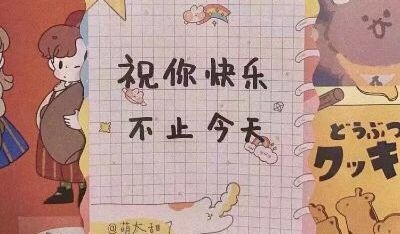 祝你快乐
不止今天
どうぶつ
クッキ